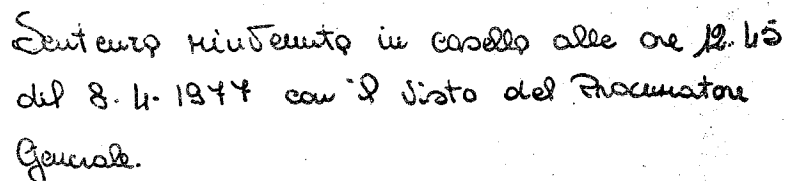 Sentenza rinvenuta in casella alle ore 12.45
del 8.4.1977 con il visto del Procuratore
Generale.